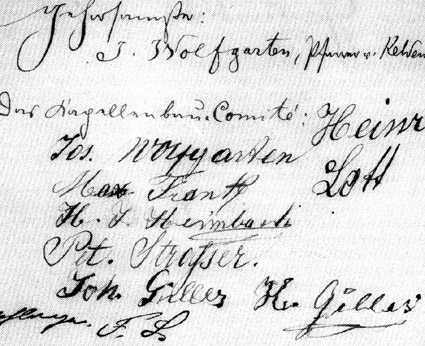 Gehorsamste:
J. Wolfgarten, Pfarrer v.
Das Kapellenbau-Comité:
Heinr
Jos. Wolfgarten
Lott
Max Frantz
H. J. Heimbach
Pet. Strasser.
Joh. Gilles
H. Gilles
F. L.